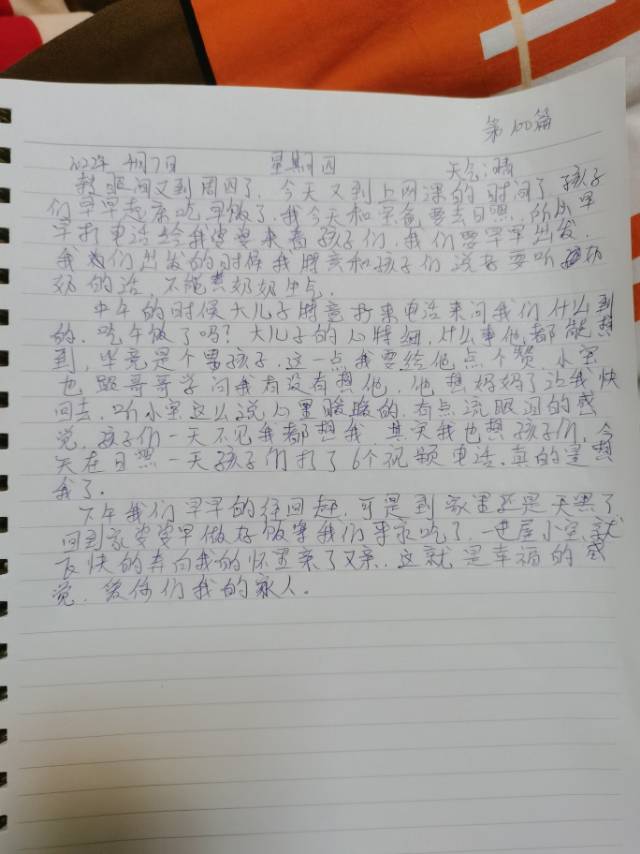 第100篇
2022年 4月7日 星期四 天气:晴
转眼间又到周四了,今天又到上网课的时间了孩子
们早早起床吃早饭了.我今天和宝爸要去日照,所以早
早打电话给我婆婆来看孩子们.我们要早早出发.
我们出发的时候我将亲和孩子们说好要听奶
奶的话,不能惹奶奶生气.
中午的时候大儿子特意打来电话来问我们什么到
的.吃午饭了吗?大儿子的心特细,什么事他都能想
到,毕竟是个男孩子.这一点我要给他点个赞.小宝
也跟哥哥学问我有没有想他,他想妈妈了让我快
回去,听小宝这么说心里暖暖的.有点流眼泪的感
觉,孩子们一天不见我都想我.其实我也想孩子们,今
天在日照一天孩子们打了6个视频电话.真的是想
我了.
下午我们早早的往回赶.可是到家里还是天黑了
回到家婆婆早做好饭等我们来家吃了.一进屋小宝就
飞快的奔向我的怀里亲了又亲.这就是幸福的感
觉.爱你们我的家人.